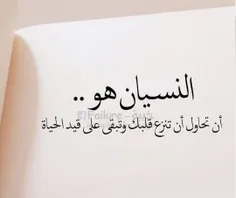 النسيان هو ..
أن تحاول أن تنزع قلبك وتبقى على قيد الحياة